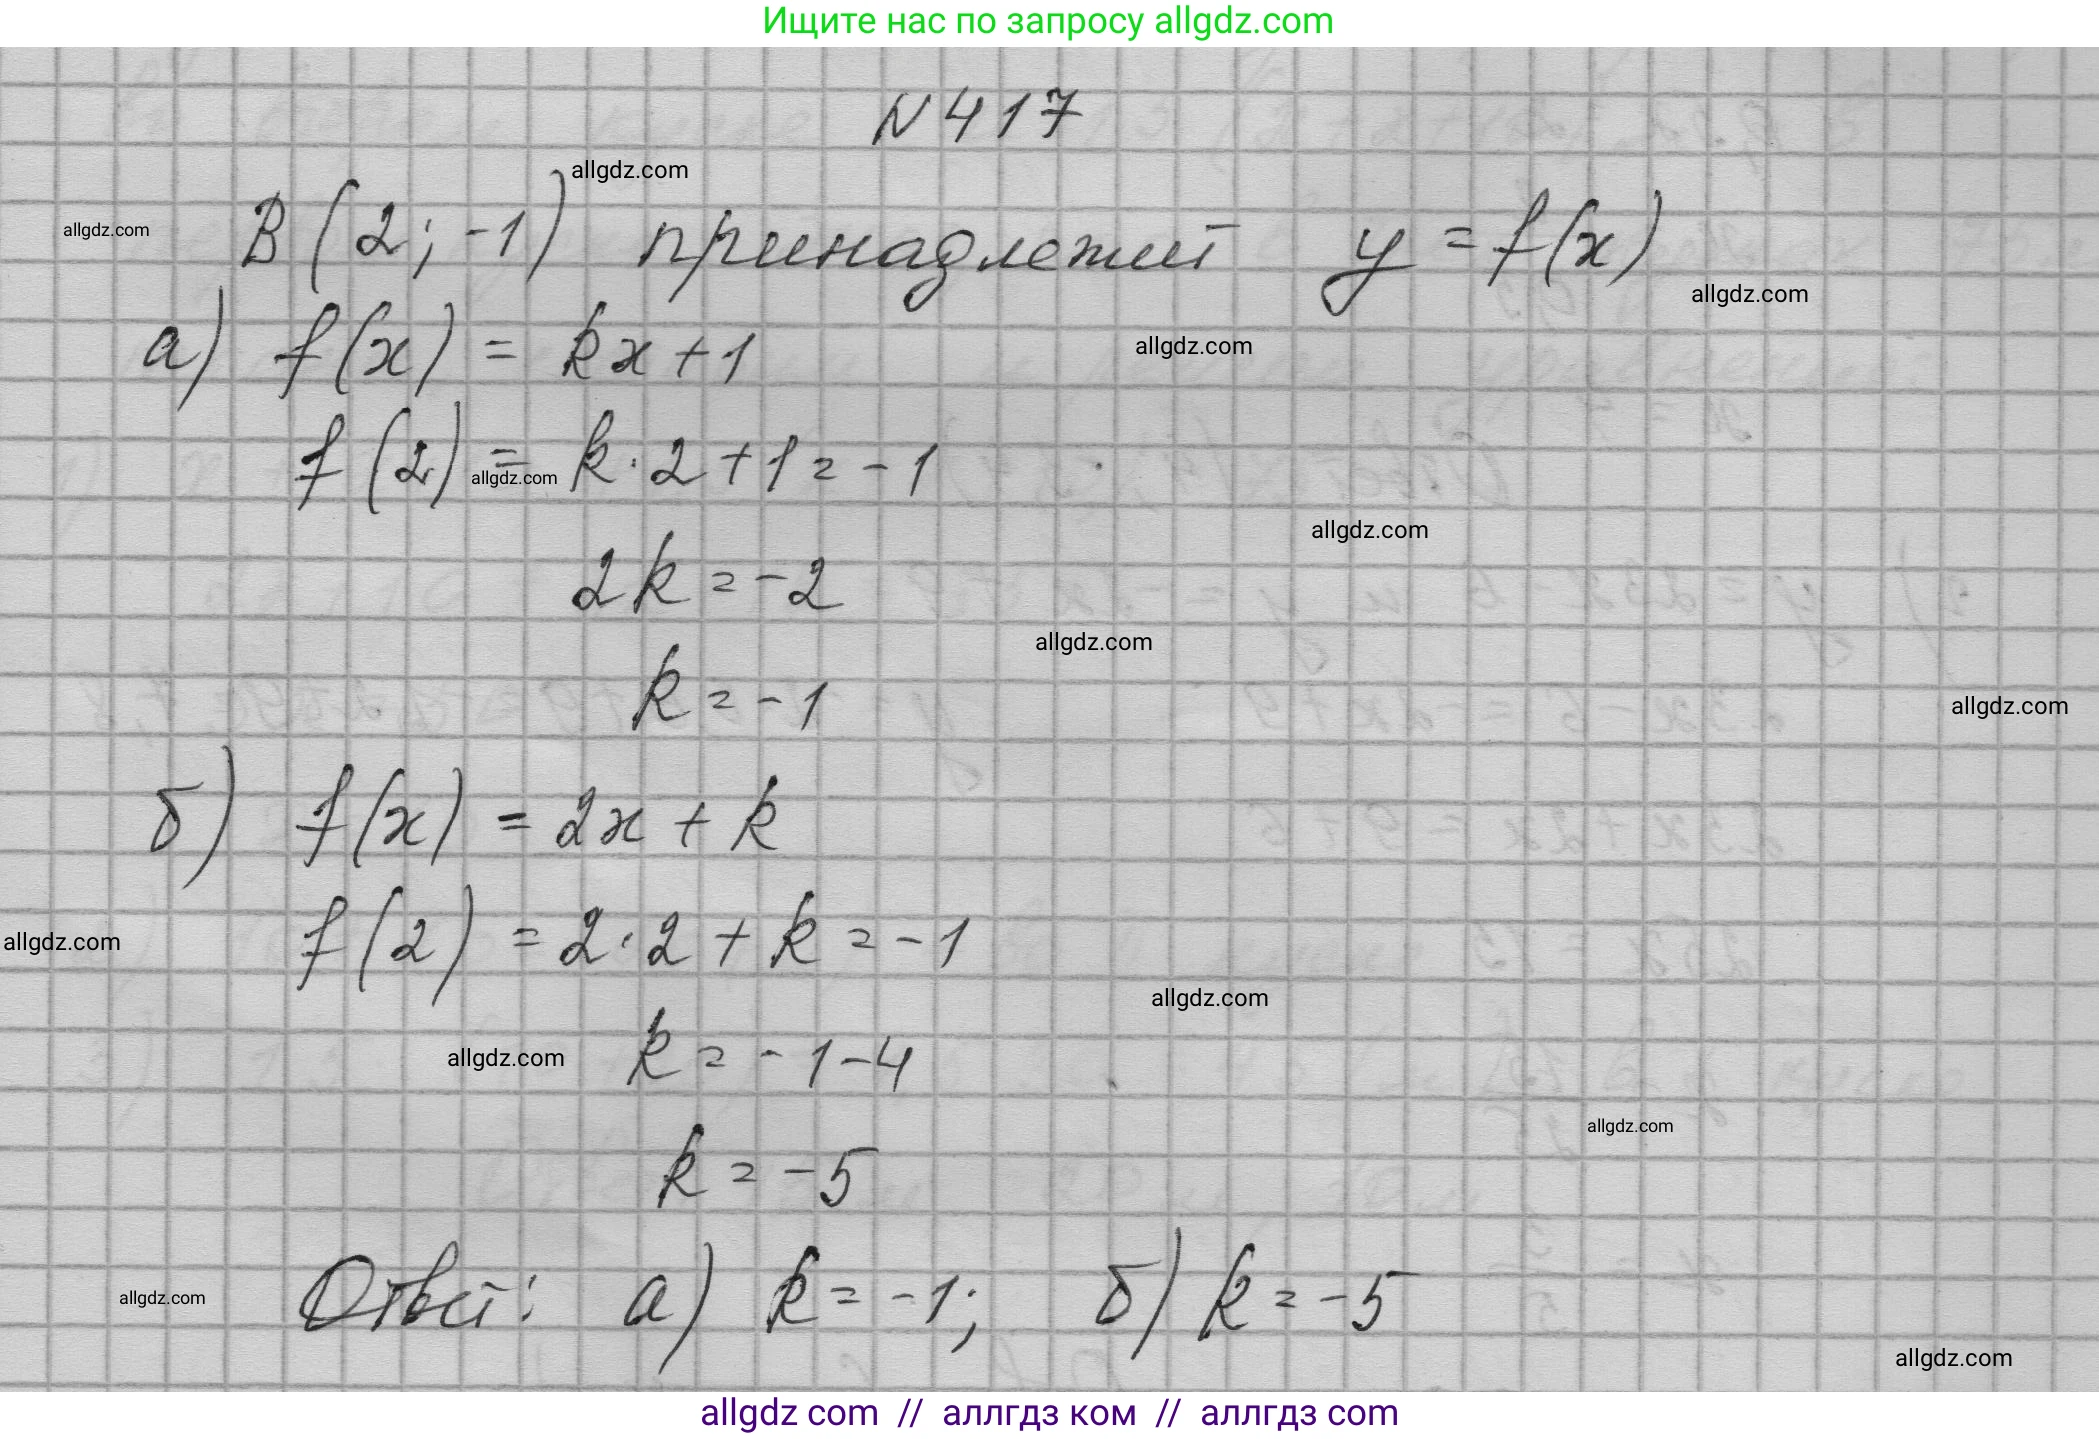 Ищите нас по запросу allgdz.com
N 417
allgdz.com
B(2; -1) принадлежит y = f(x)
allgdz.com
allgdz.com
а) f(x) = kx + 1
allgdz.com
f(2) = k · 2 + 1 = -1
allgdz.com
allgdz.com
2k = -2
allgdz.com
k = -1
allgdz.com
б) f(x) = 2x + k
f(2) = 2 · 2 + k = -1
allgdz.com
allgdz.com
k = -1 - 4
allgdz.com
allgdz.com
k = -5
Ответ: а) k = -1; б) k = -5
allgdz.com
allgdz.com
allgdz com // аллгдз ком // аллгдз com